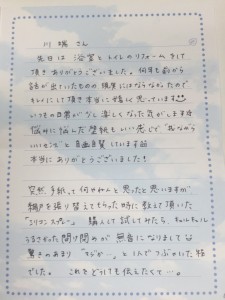 川端さん
先日は 浴室とトイレのリフォームをして
頂きありがとうございました。何年も前から
話が出ていたものの現実にはならなかったので
キレイにして頂き本当に嬉しく思っています
いつもの日常が少し楽しくなった気がします
悩みに悩んだ壁紙もいい感じで "我ながら
いいセンス" と自画自賛しています
本当にありがとうございました!
突然手紙って何やねんと思ったと思いますが
網戸を張り替えてもらった時に教えて頂いた
「シリコンスプレー」 購入して試してみたら、
うるさかった開け閉めが 無音になりまして
驚きのあまり "マジか…。" と1人でつぶやいた
でした。 これをどうしても伝えたくて…。